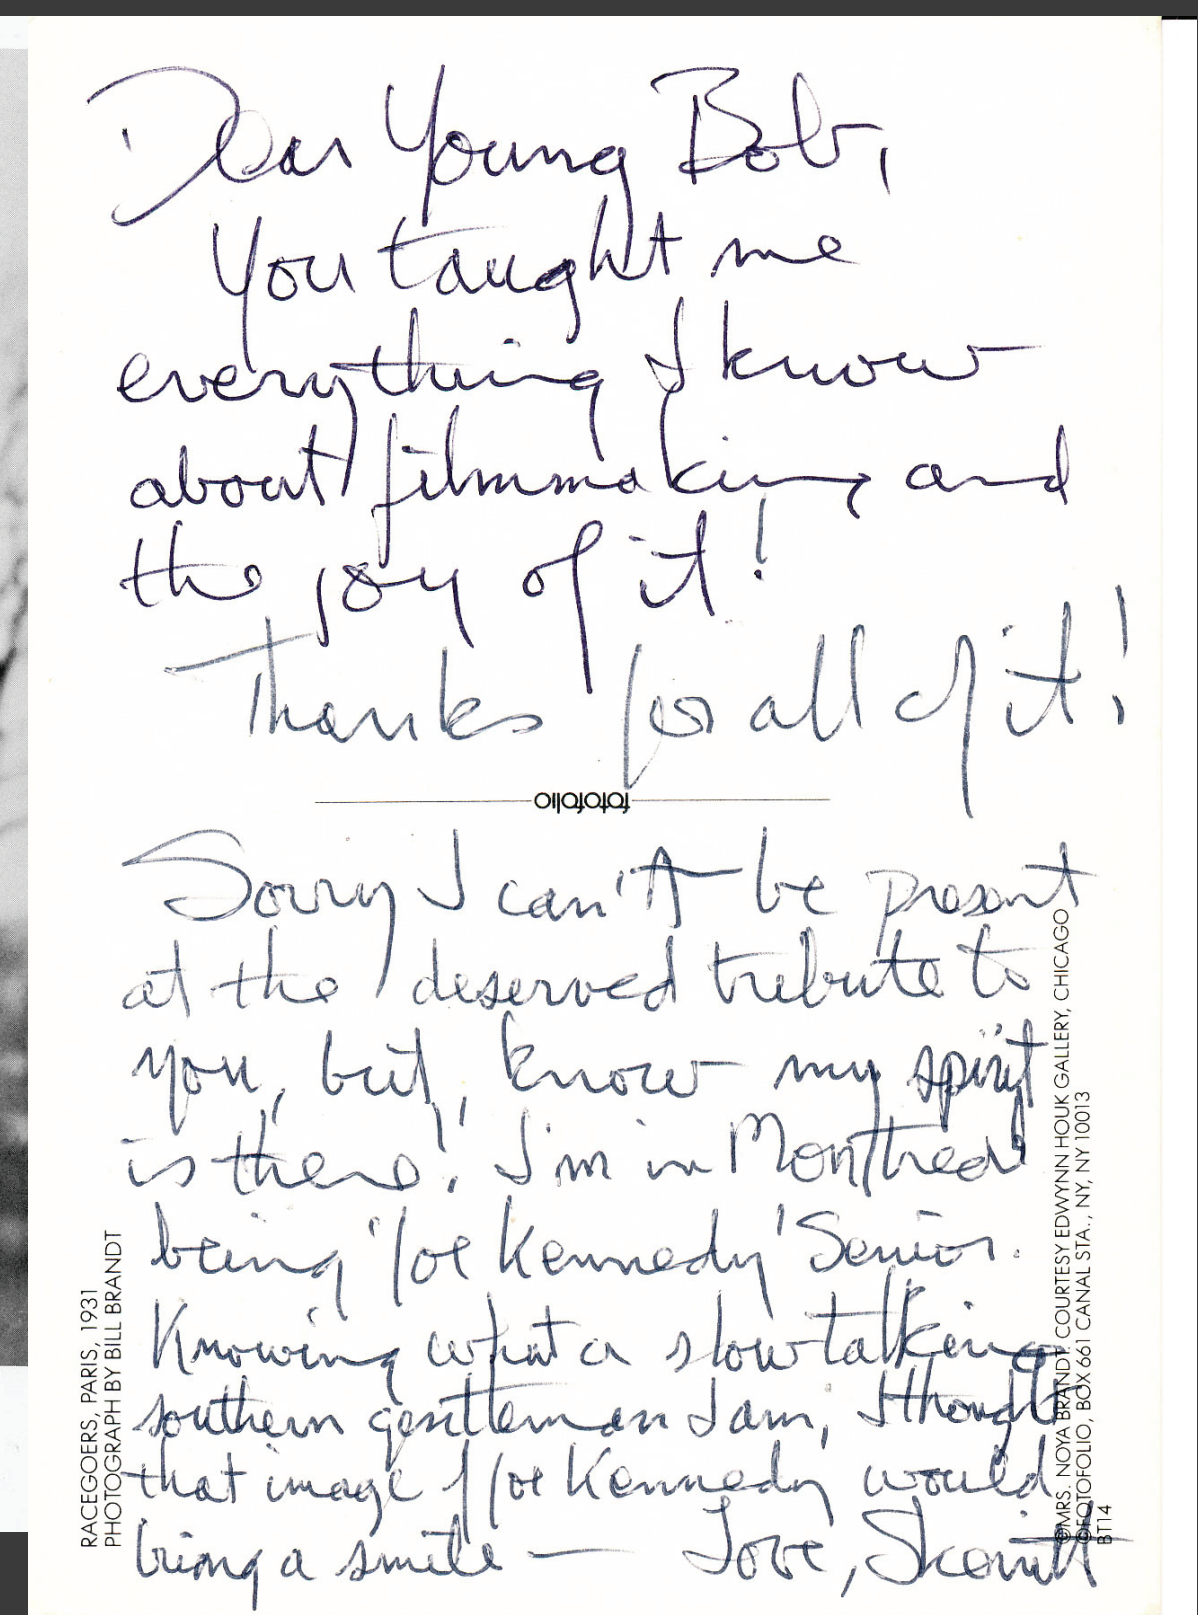 Dear Young Bob,
You taught me
everything I know
about filmmaking and
the joy of it!
Thanks for all of it!
fotofolio
Sorry I can't be present
at the deserved tribute to
you, but, know my spirit
is there! I'm in Montreal
being 'Joe Kennedy' Senior.
Knowing what a slow talking
southern gentleman I am, I thought
that image of Joe Kennedy would
bring a smile — Love, Skerritt
RACEGOERS, PARIS, 1931
PHOTOGRAPH BY BILL BRANDT
©MRS. NOYA BRANDT. COURTESY EDWYNN HOUK GALLERY, CHICAGO
©FOTOFOLIO, BOX 661 CANAL STA., NY, NY 10013
BT14